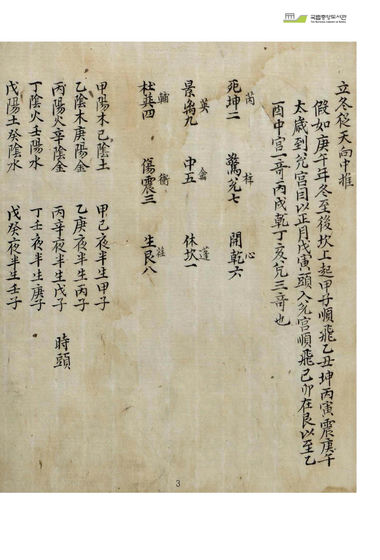 국립중앙도서관
立冬從天向中推
假如庚午年冬至後坎上起甲子順飛乙丑坤丙寅震庚午
太歲到兌宮因以正月戊寅頭入兌宮順飛己卯在艮以至乙
酉中宮一奇丙戌乾丁亥兌三奇也
芮 柱 心
死坤二 驚兌七 開乾六
英 禽 蓬
景离九 中五 休坎一
輔 衝
杜巽四 傷震三 生艮八
時頭
甲陽木己陰土 甲己夜半生甲子
乙陰木庚陽金 乙庚夜半生丙子
丙陽火辛陰金 丙辛夜半生戊子
丁陰火壬陽水 丁壬夜半生庚子
戊陽土癸陰水 戊癸夜半生壬子
3